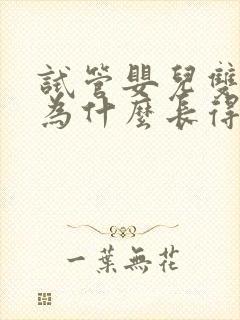 試管嬰兒雙
為什麼長得
一葉無花